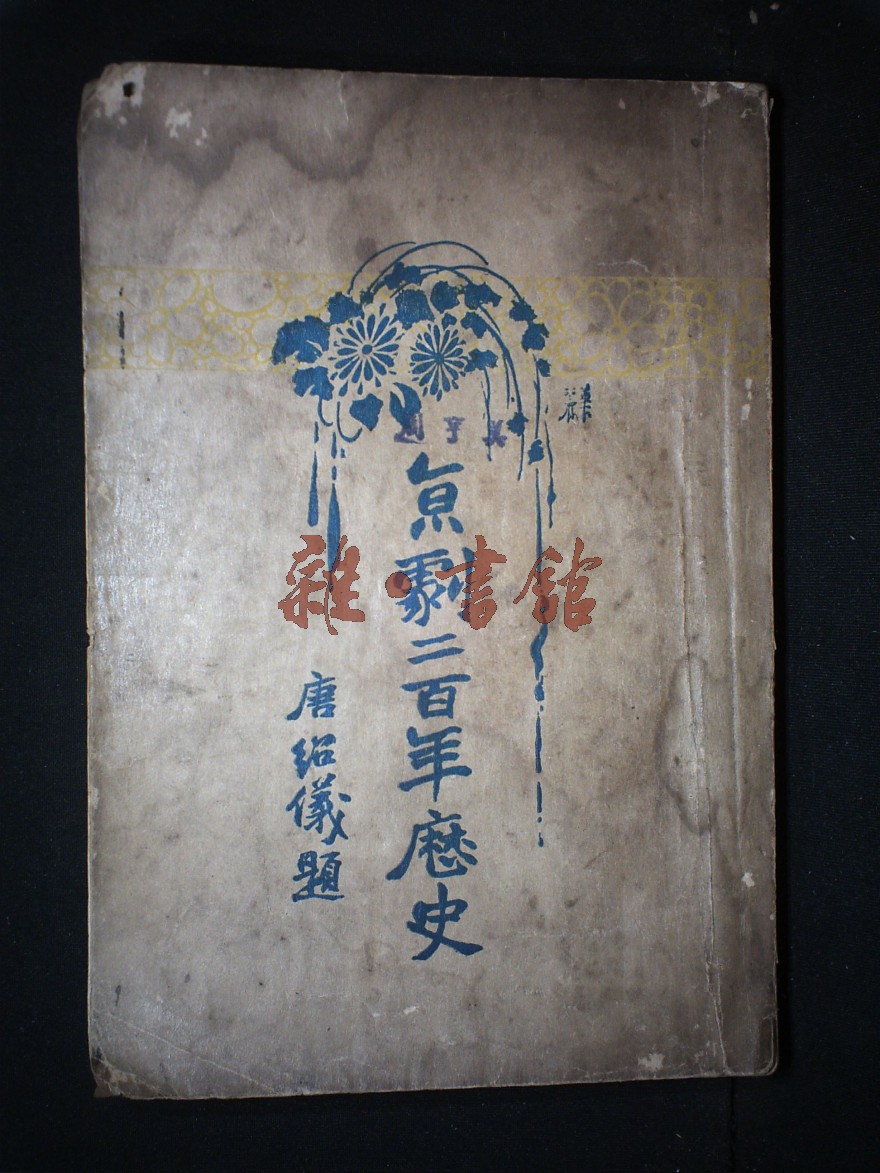 京劇二百年歷史
唐紹儀題
雜·書館